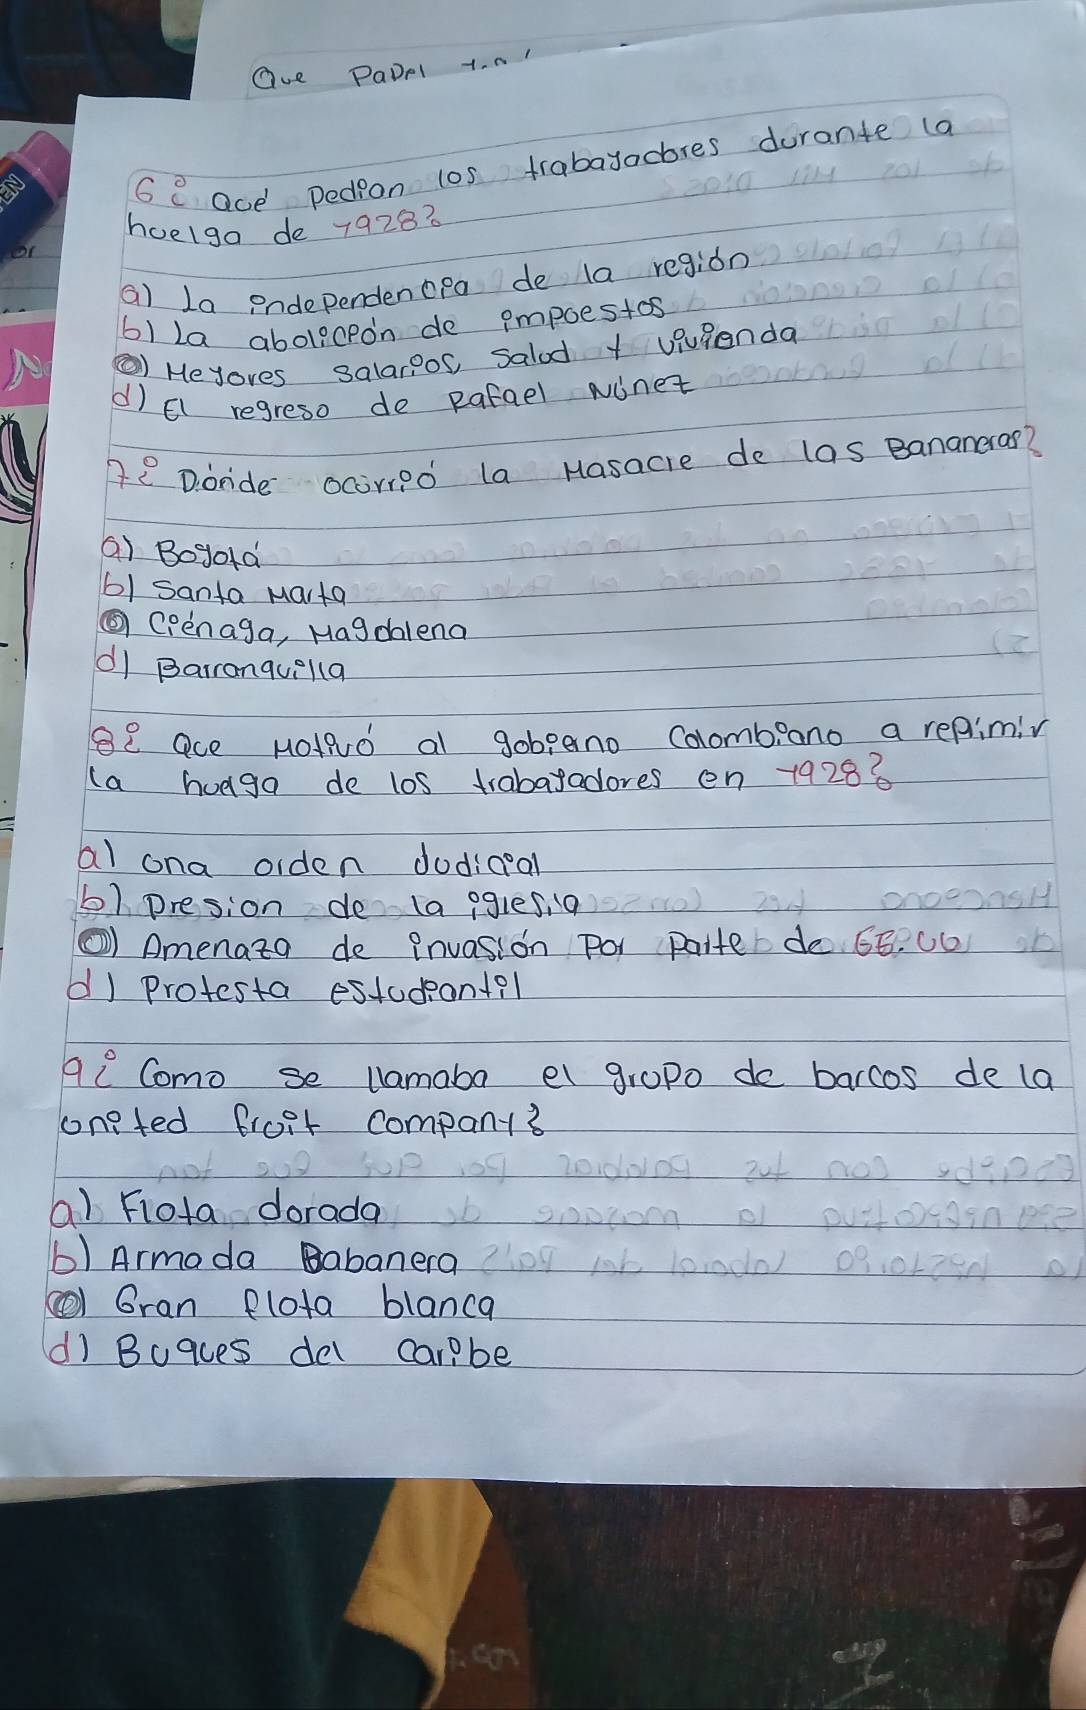 Que Papel
6¿ Qué Pedían los trabajadores durante la
huelga de 1928?
a) La independencia de la región
b) La abolición de impuestos
c) Mejores salarios, salud y vivienda
d) El regreso de Rafael Núnez
7¿ Dónde ocurrió la Masacre de las Bananeras?
a) Bogotá
b) Santa Marta
c) Ciénaga, Magdalena
d) Barranquilla
8¿ Que Motivó al gobieno Colombiano a repimir
la huelga de los trabajadores en 1928?
a) una orden Judicial
b) Presion de la iglesia
c) Amenaza de invasión Por Parte de EE.UU
d) Protesta estudiantil
9¿ Como se llamaba el grupo de barcos de la
united fruit company?
a) Flota dorada
b) Armada Babanera
c) Gran flota blanca
d) Buques del caribe